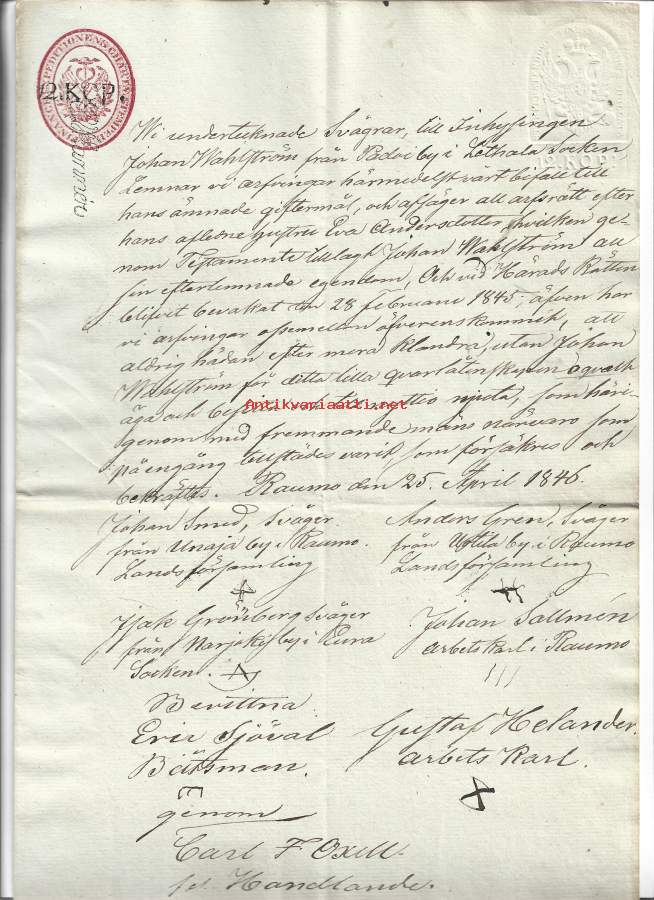 FINANS EXPEDITIONENS CHARTÆ STEMPEL
12.KOP.
12.KOP:
Wi undertecknade Svägrar, till Inhysingen
Johan Wahlström från by i Lethala Socken
Lemnar vi arfvingar härmedelst vårt bifall till
hans ämnade giftermål, och afsäger all arfsrätt efter
hans afledne hustru Eva Andersdotter, hvilken ge-
nom Testamente tillagt Johan Wahlström all
sin efterlemnade egendom, Och vid Härads Rätten
blifvit bevakat den 28 februarii 1845; äfven har
vi arfvingar ossemellan öfverenskommit, att
aldrig hädan efter mera klandra, utan Johan
Wahlström för detta lilla oqvalt
äga och besitta och till nyttio njuta, som häri-
genom med fremmande mäns närvaro som
på engång tillstädes varit, som försäkres och
bekräftes. Raumo den 25. April 1846.
Johan Smed, Sväger
från Unaja by i Raumo
Lands församling
Anders Gren, Sväger
från by i Raumo
Landsförsamling
Isak Grönberg Sväger
från by i Eura
Socken.
Johan Sallmén
arbets karl i Raumo
Bevittna
Eric Sjöval
Båtsman.
Gustaf Helander.
arbets Karl.
genom
Carl F Oxell.
Handlande.
Antikvariaatti.net